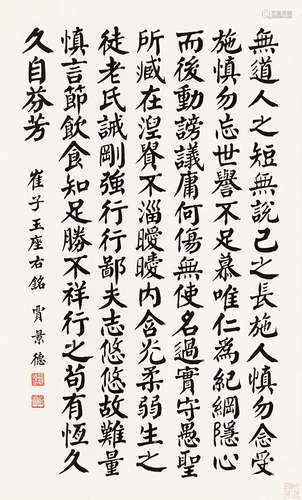 無道人之短無說己之長施人慎勿念受
施慎勿忘世譽不足慕唯仁為紀綱隱心
而後動謗議庸何傷無使名過實守愚聖
所臧在湼脊不淄曖曖内含光柔弱生之
徒老氏誡剛強行行鄙夫志悠悠故難量
慎言節飲食知足勝不祥行之苟有恆久
久自芬芳 崔子玉座右銘 賈景德